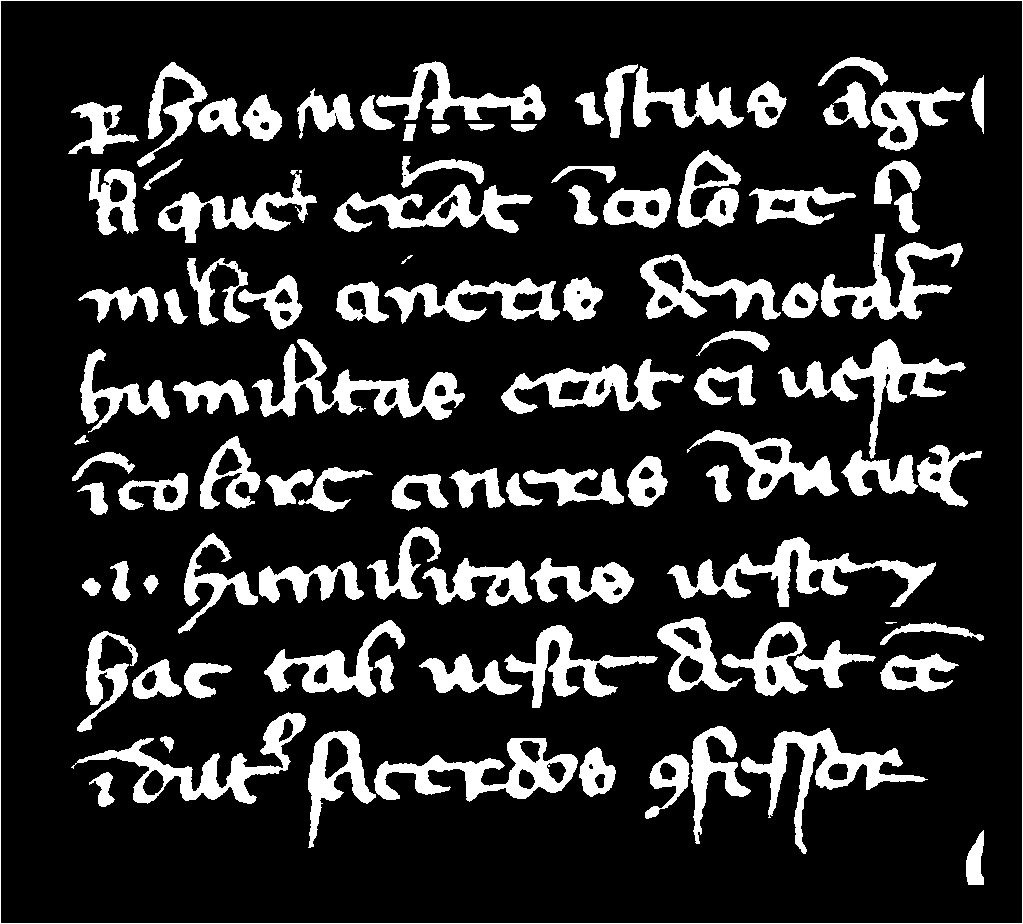 ꝑ has uestes istius āge
li que erāt ī colore si
miles cineris denotat᷑
humilitas erat eī ueste
ī colore cineris īdutus
.i. humilitatis ueste ⁊
hac tali ueste debet eē
īdutꝰ sacerdos ꝯfessor